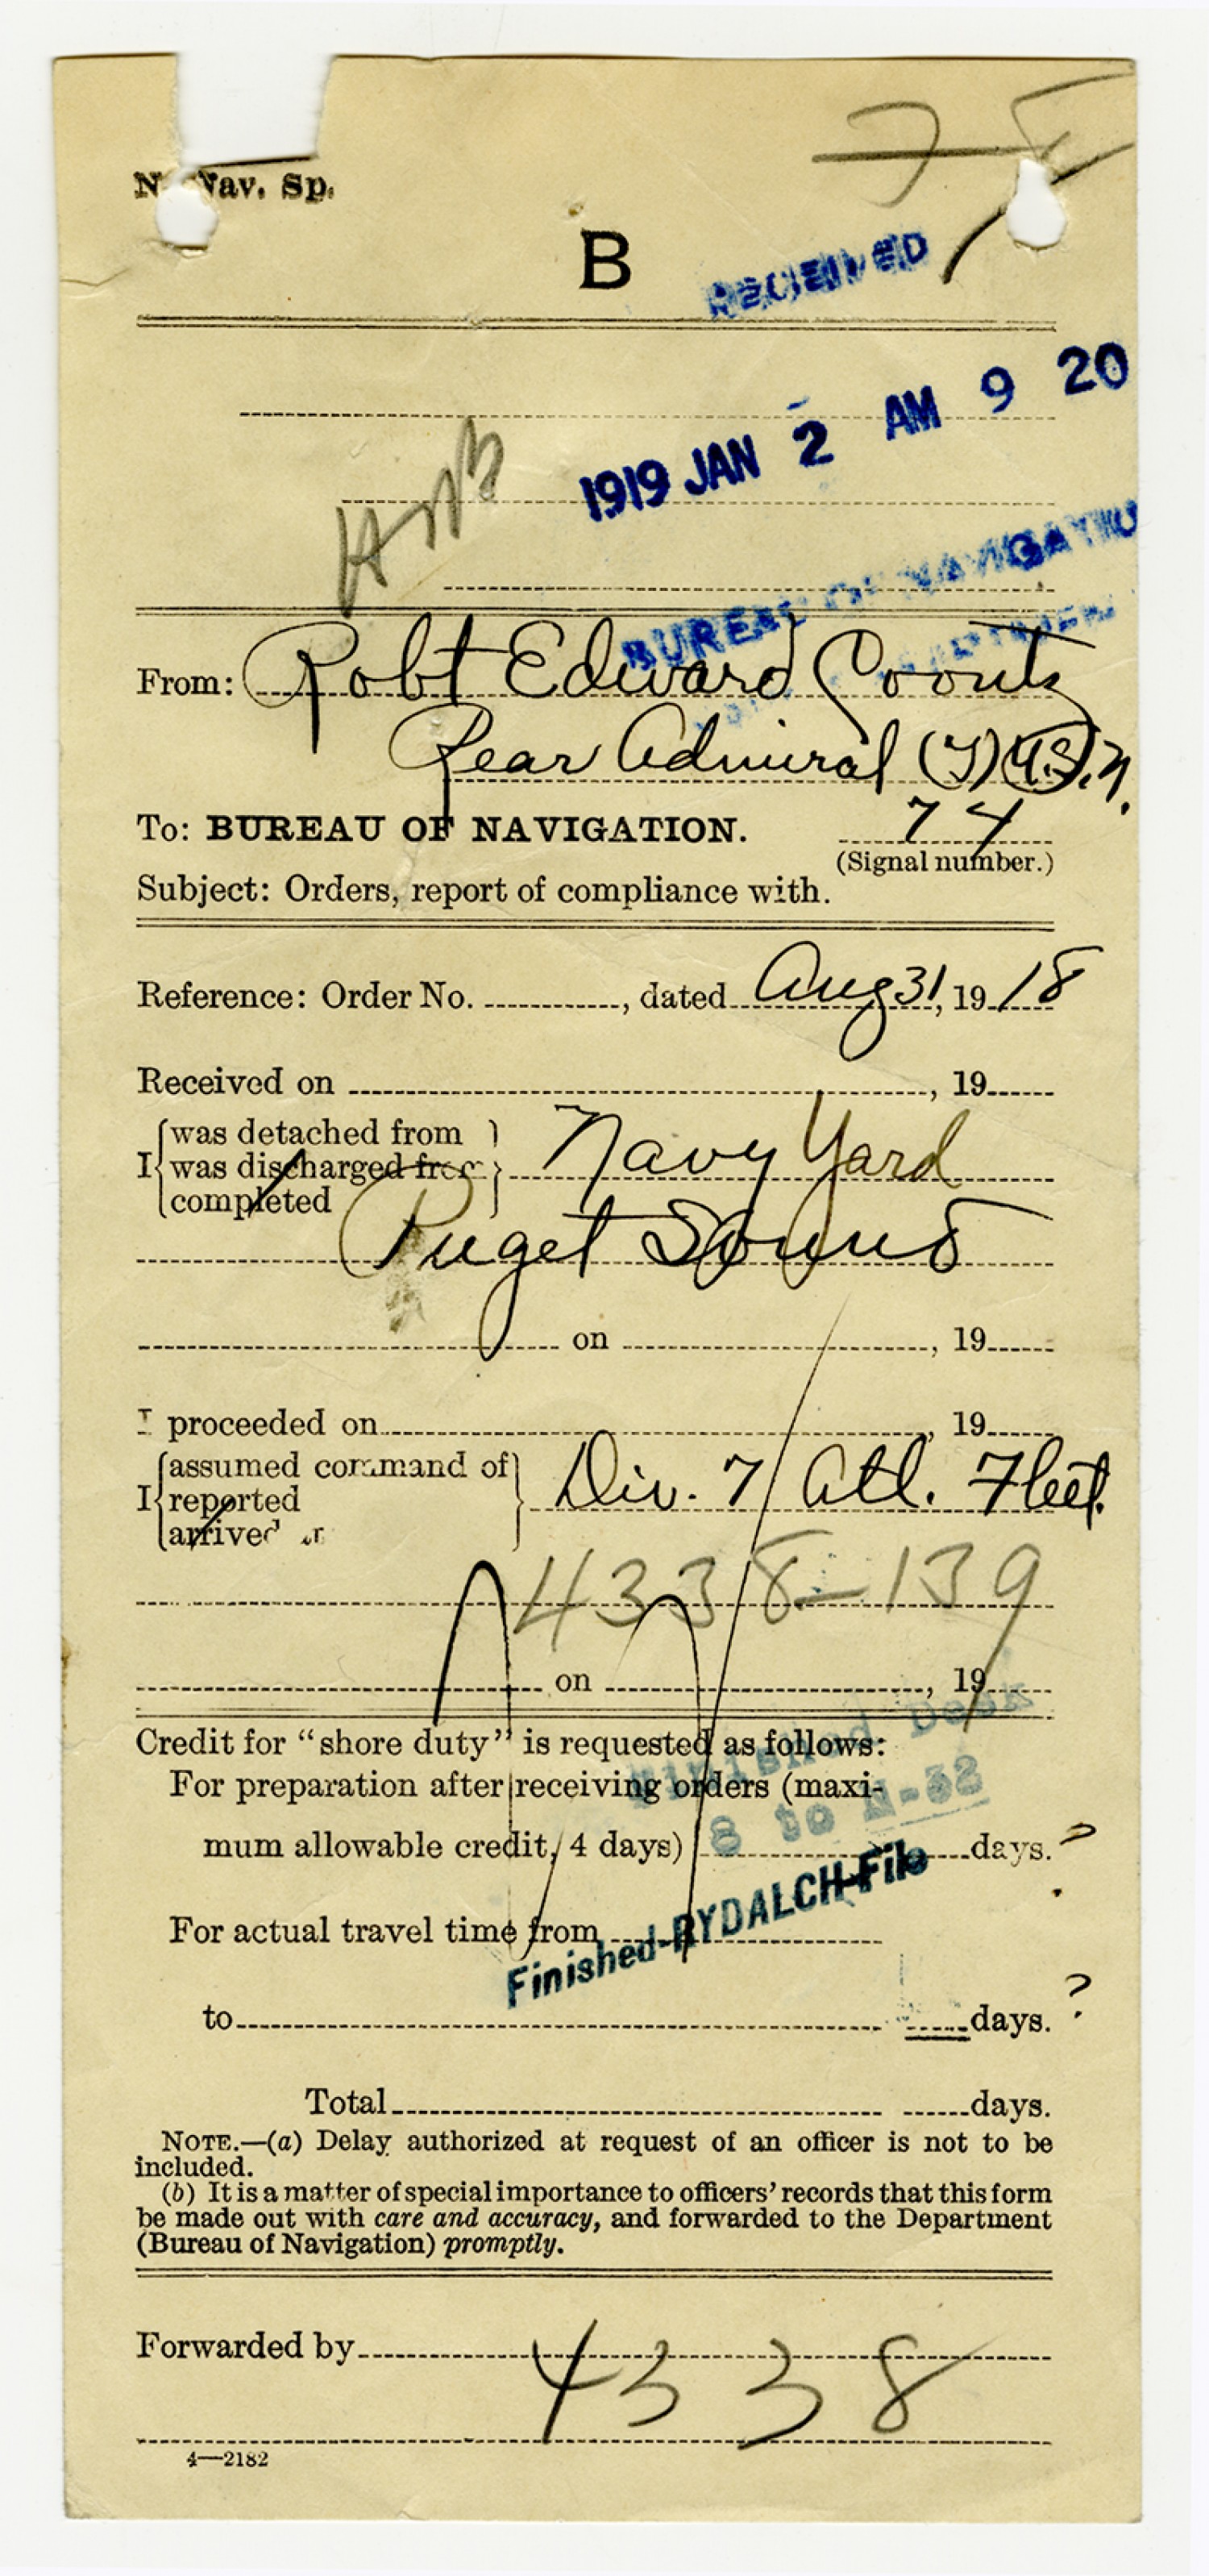 N. Nav. Sp.
B
RECEIVED
1919 JAN 2 AM 9 20
BUREAU OF NAVIGATION
From: Robt Edward Coontz
Rear Admiral (T) U.S.N.
To: BUREAU OF NAVIGATION.
74
(Signal number.)
Subject: Orders, report of compliance with.
Reference: Order No. , dated Aug 31, 1918
Received on , 19
I {was detached from
was discharged from
completed} Navy Yard
Puget Sound
on , 19
I proceeded on , 19
I {assumed command of
reported
arrived } Div. 7 Atl. Fleet.
4338-139
on , 19
Credit for “shore duty” is requested as follows:
Finished Desk
For preparation after receiving orders (maxi-
8 to N-32
mum allowable credit, 4 days) days. ?
Finished-RYDALCH-File
For actual travel time from
to days. ?
Total days.
NOTE.—(a) Delay authorized at request of an officer is not to be
included.
(b) It is a matter of special importance to officers’ records that this form
be made out with care and accuracy, and forwarded to the Department
(Bureau of Navigation) promptly.
Forwarded by
4338
4—2182